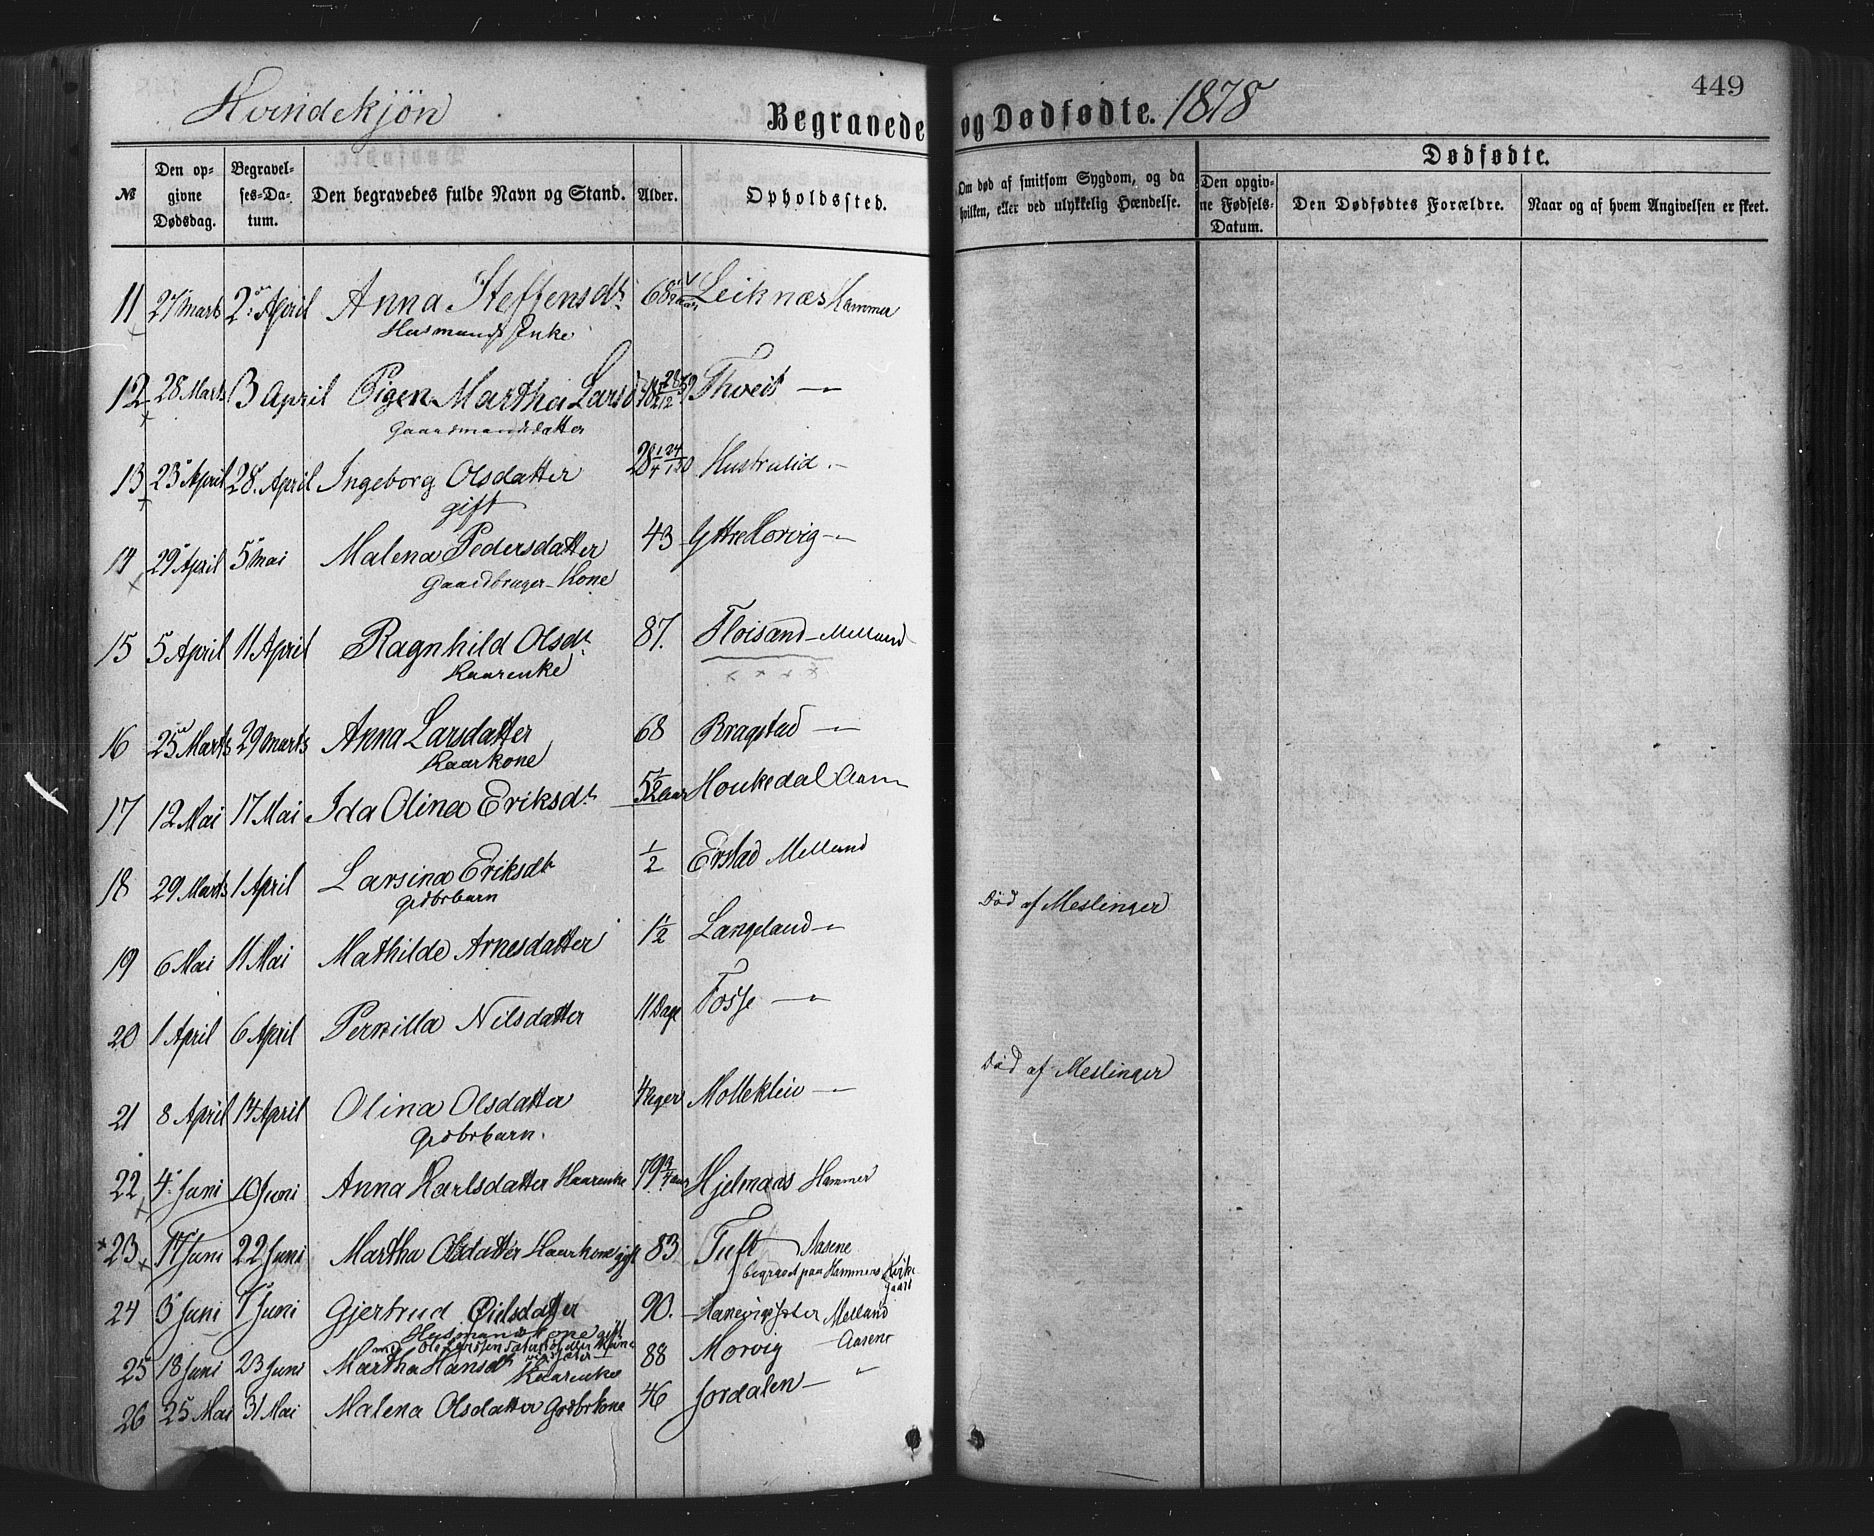 Hvindekjön
Begravede og Dødfødte. 1878
449
№
Den opgivne Dødsdag.
Begravelses-Datum.
Den begravedes fulde Navn og Stand.
Alder.
Opholdssted.
Om død af smitsom Sygdom, og da hvilken, eller ved ulykkelig Hændelse.
Dødfødte.
Den opgivne Fødsels-Datum.
Den Dødfødtes Forældre.
Naar og af hvem Angivelsen er skeet.
11 27 Marts 2 April Anna Steffensdt. 68 Leiknæs Hammer
Husmands Enke
12 28 Marts 3 April Pigen Martha Larsd Thveit —"—
Gaardmandsdatter
13 23 April 28. April Ingeborg Olsdatter 28 1/4 —"—
gift
14 29 April 5 Mai Malena Pedersdatter 43 Ytre Morvig —"—
Gaardbruger-Kone
15 5 April 11 April Ragnhild Olsdt. 87. Floisand — Melland
Kaarenke
16 25 Marts 29 Marts Anna Larsdatter 68 Bragstad —"—
Kaarkone
17 12 Mai 17 Mai Ida Olina Eriksdt. 5 1/2 Aar Houkedal Aasn
18 29 Marts 1 April Larsina Eriksdt. 1/2 Erstad Melland
Grdbrbarn
Död af Meslinger
19 6 Mai 11 Mai Mathilde Arnesdatter 1 1/2 Langeland —"—
20 1 April 6 April Pernilla Nilsdatter 11 Dage Fosse —"—
Död af Meslinger
21 8 April 14 April Olina Olsdatter 4 Uger Mollekleiv —"—
Grdbrbarn.
22 4 Juni 10 Juni Anna Karlsdatter Kaarenke 79 3/4 aar Hjelmaas Hammer
23 17 Juni 22 Juni Martha Olsdatter Kaarkone gift 83 Tuft Aasene
begraved paa Hammers Kirke
gaard
24 5 Juni 7 Juni Gjertrud 90. Melland
Husmandskone gift
25 18 Juni 23 Juni Martha Hansdt. 88 Morvig — Aasene
Kaarenke
26 25 Mai 31 Mai Malena Olsdatter Grdbrkone 46 Jordalen — "